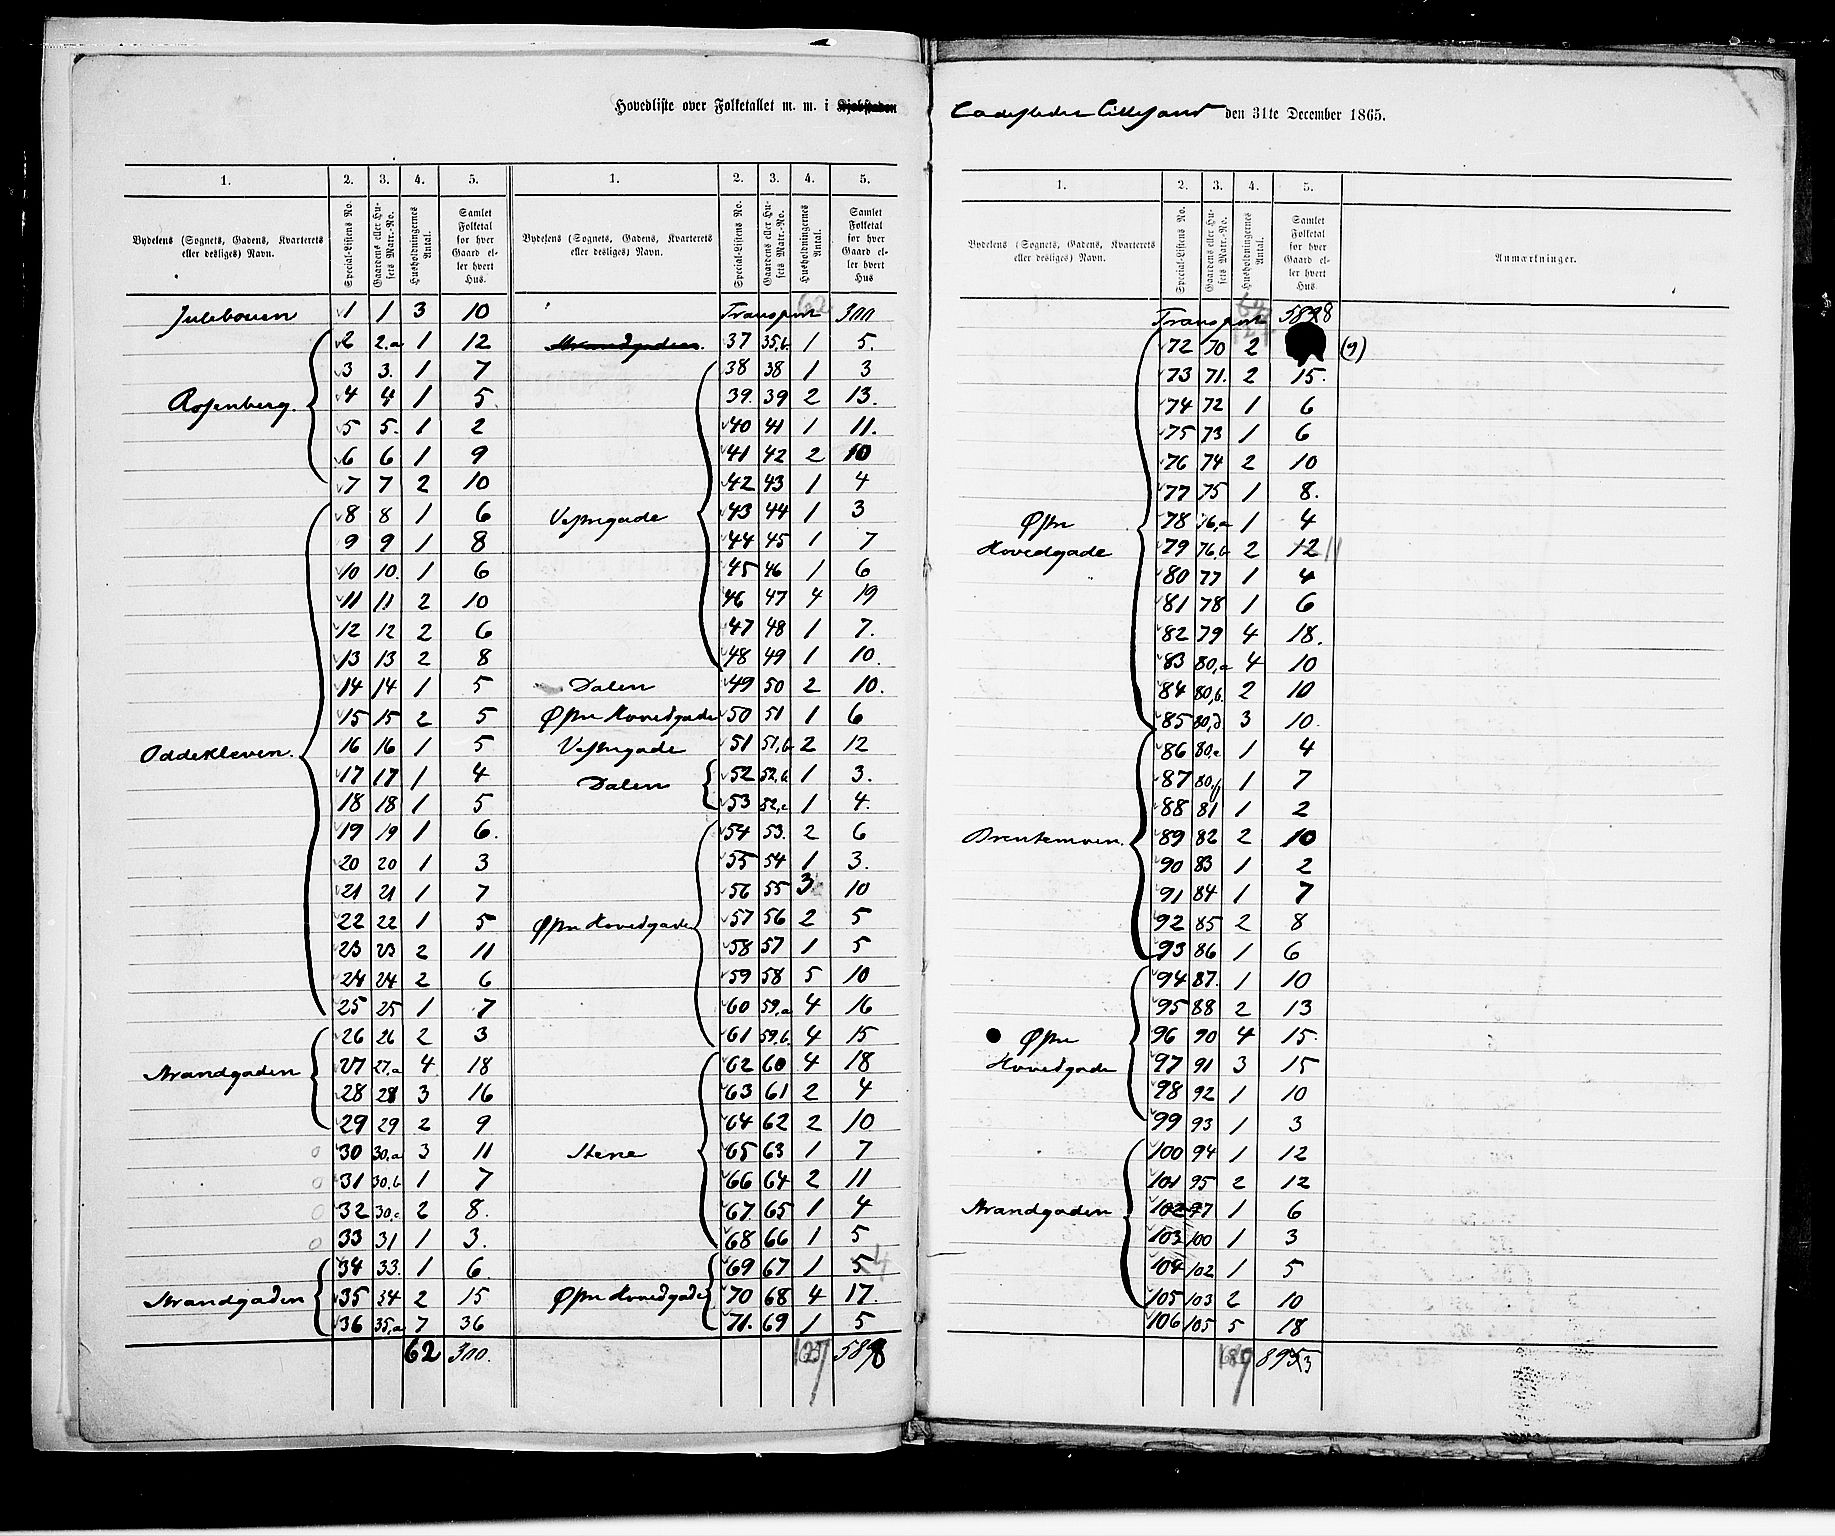 Hovedliste over Folketallet m. m. i Kjøbstaden Ladestedet Lillesand den 31te December 1865.
1. 2. 3. 4. 5.
Bydelens (Sognets, Gadens, Kvarterets eller desliges) Navn. Special-Listens No. Gaardens eller Husets Matr.-No. Husholdningernes Antal. Samlet Folketal for hver Gaard eller hvert Hus.
Julebouen 1 1 3 10
2 2.a 1 12
3 3. 1 7
Rosenberg. 4 4 1 5
5 5. 1 2
6 6 1 9
7 7 2 10
8 8 1 6
9 9 1 8
10 10. 1 6
11 11 2 10
12 12 2 6
13 13 2 8
14 14 1 5
15 15 2 5
Oddekleven. 16 16 1 5
17 17 1 4
18 18 1 5
19 19 1 6.
20 20 1 3
21 21 1 7
22 22 1 5
23 23 2 11
24 24 2 6
25 25 1 7
26 26 2 3
Strandgaden 27 27.a 4 18
28 28 3 16
29 29 2 9
30 30.a 3 11
31 30.b 1 7
32 30.c 2 8.
33 31 1 3.
34 33. 1 6.
Strandgaden 35 34 2 15
36 35.a 7 36
62 300.
1. 2. 3. 4. 5.
Bydelens (Sognets, Gadens, Kvarterets eller desliges) Navn. Special-Listens No. Gaardens eller Husets Matr.-No. Husholdningernes Antal. Samlet Folketal for hver Gaard eller hvert Hus
Transport 62 300
Strandgaden. 37 35.b. 1 5.
38 38 1 3
39. 39 2 13.
40 41 1 11.
41 42 2 10
42 43 1 4
Vestregade 43 44 1 3
44 45 1 7
45 46 1 6
46 47 4 19
47 48 1 7.
48 49 1 10.
Dalen 49 50 2 10.
Østre Hovedgade 50 51 1 6
Vestregade 51 51.b 2 12
Dalen 52 52.b. 1 3.
53 52.c 1 4.
54 53. 2 6
55 54 1 3.
56 55 3 10
Østre Hovedgade 57 56 2 5
58 57 1 5
59 58 5 10
60 59.a 4 16
61 59.b. 4 15
62 60 4 18
63 61 2 4
64 62 2 10
Stene 65 63 1 7
66 64 2 11
67. 65 1 4
68 66 1 5
69 67 1 5 4
Østre Hovedgade 70 68 4 17.
71. 69 1 5
127 588
1. 2. 3. 4. 5.
Bydelens (Sognets, Gadens, Kvarterets eller desliges) Navn. Special-Listens No. Gaardens eller Husets Matr.-No. Husholdningernes Antal. Samlet Folketal for hver Gaard eller hvert Hus Anmærkninger.
Transport 588
72 70 2 (9)
73 71. 2 15.
74 72 1 6
75 73 1 6
76 74 2 10
77 75 1 8.
Østre Hovedgade 78 76.a 1 4
79 76.b 2 12 11
80 77 1 4
81 78 1 6
82 79 4 18.
83 80.a 4 10
84 80.b. 2 10
85 80.d 3 10.
86 80.e 1 4
87 80.f 1 7
88 81 1 2
Brentemoen. 89 82 2 10
90 83 1 2
91 84 1 7
92 85 2 8
93 86 1 6
94 87. 1 10
95 88 2 13
Østre Hovedgade 96 90 4 15.
97 91 3 15
98 92 1 10
99 93 1 3
100 94 1 12
101 95 2 12
Strandgaden 102 97 1 6
103 100 1 3
104 102 1 5
105 103 2 10
106 105 5 18